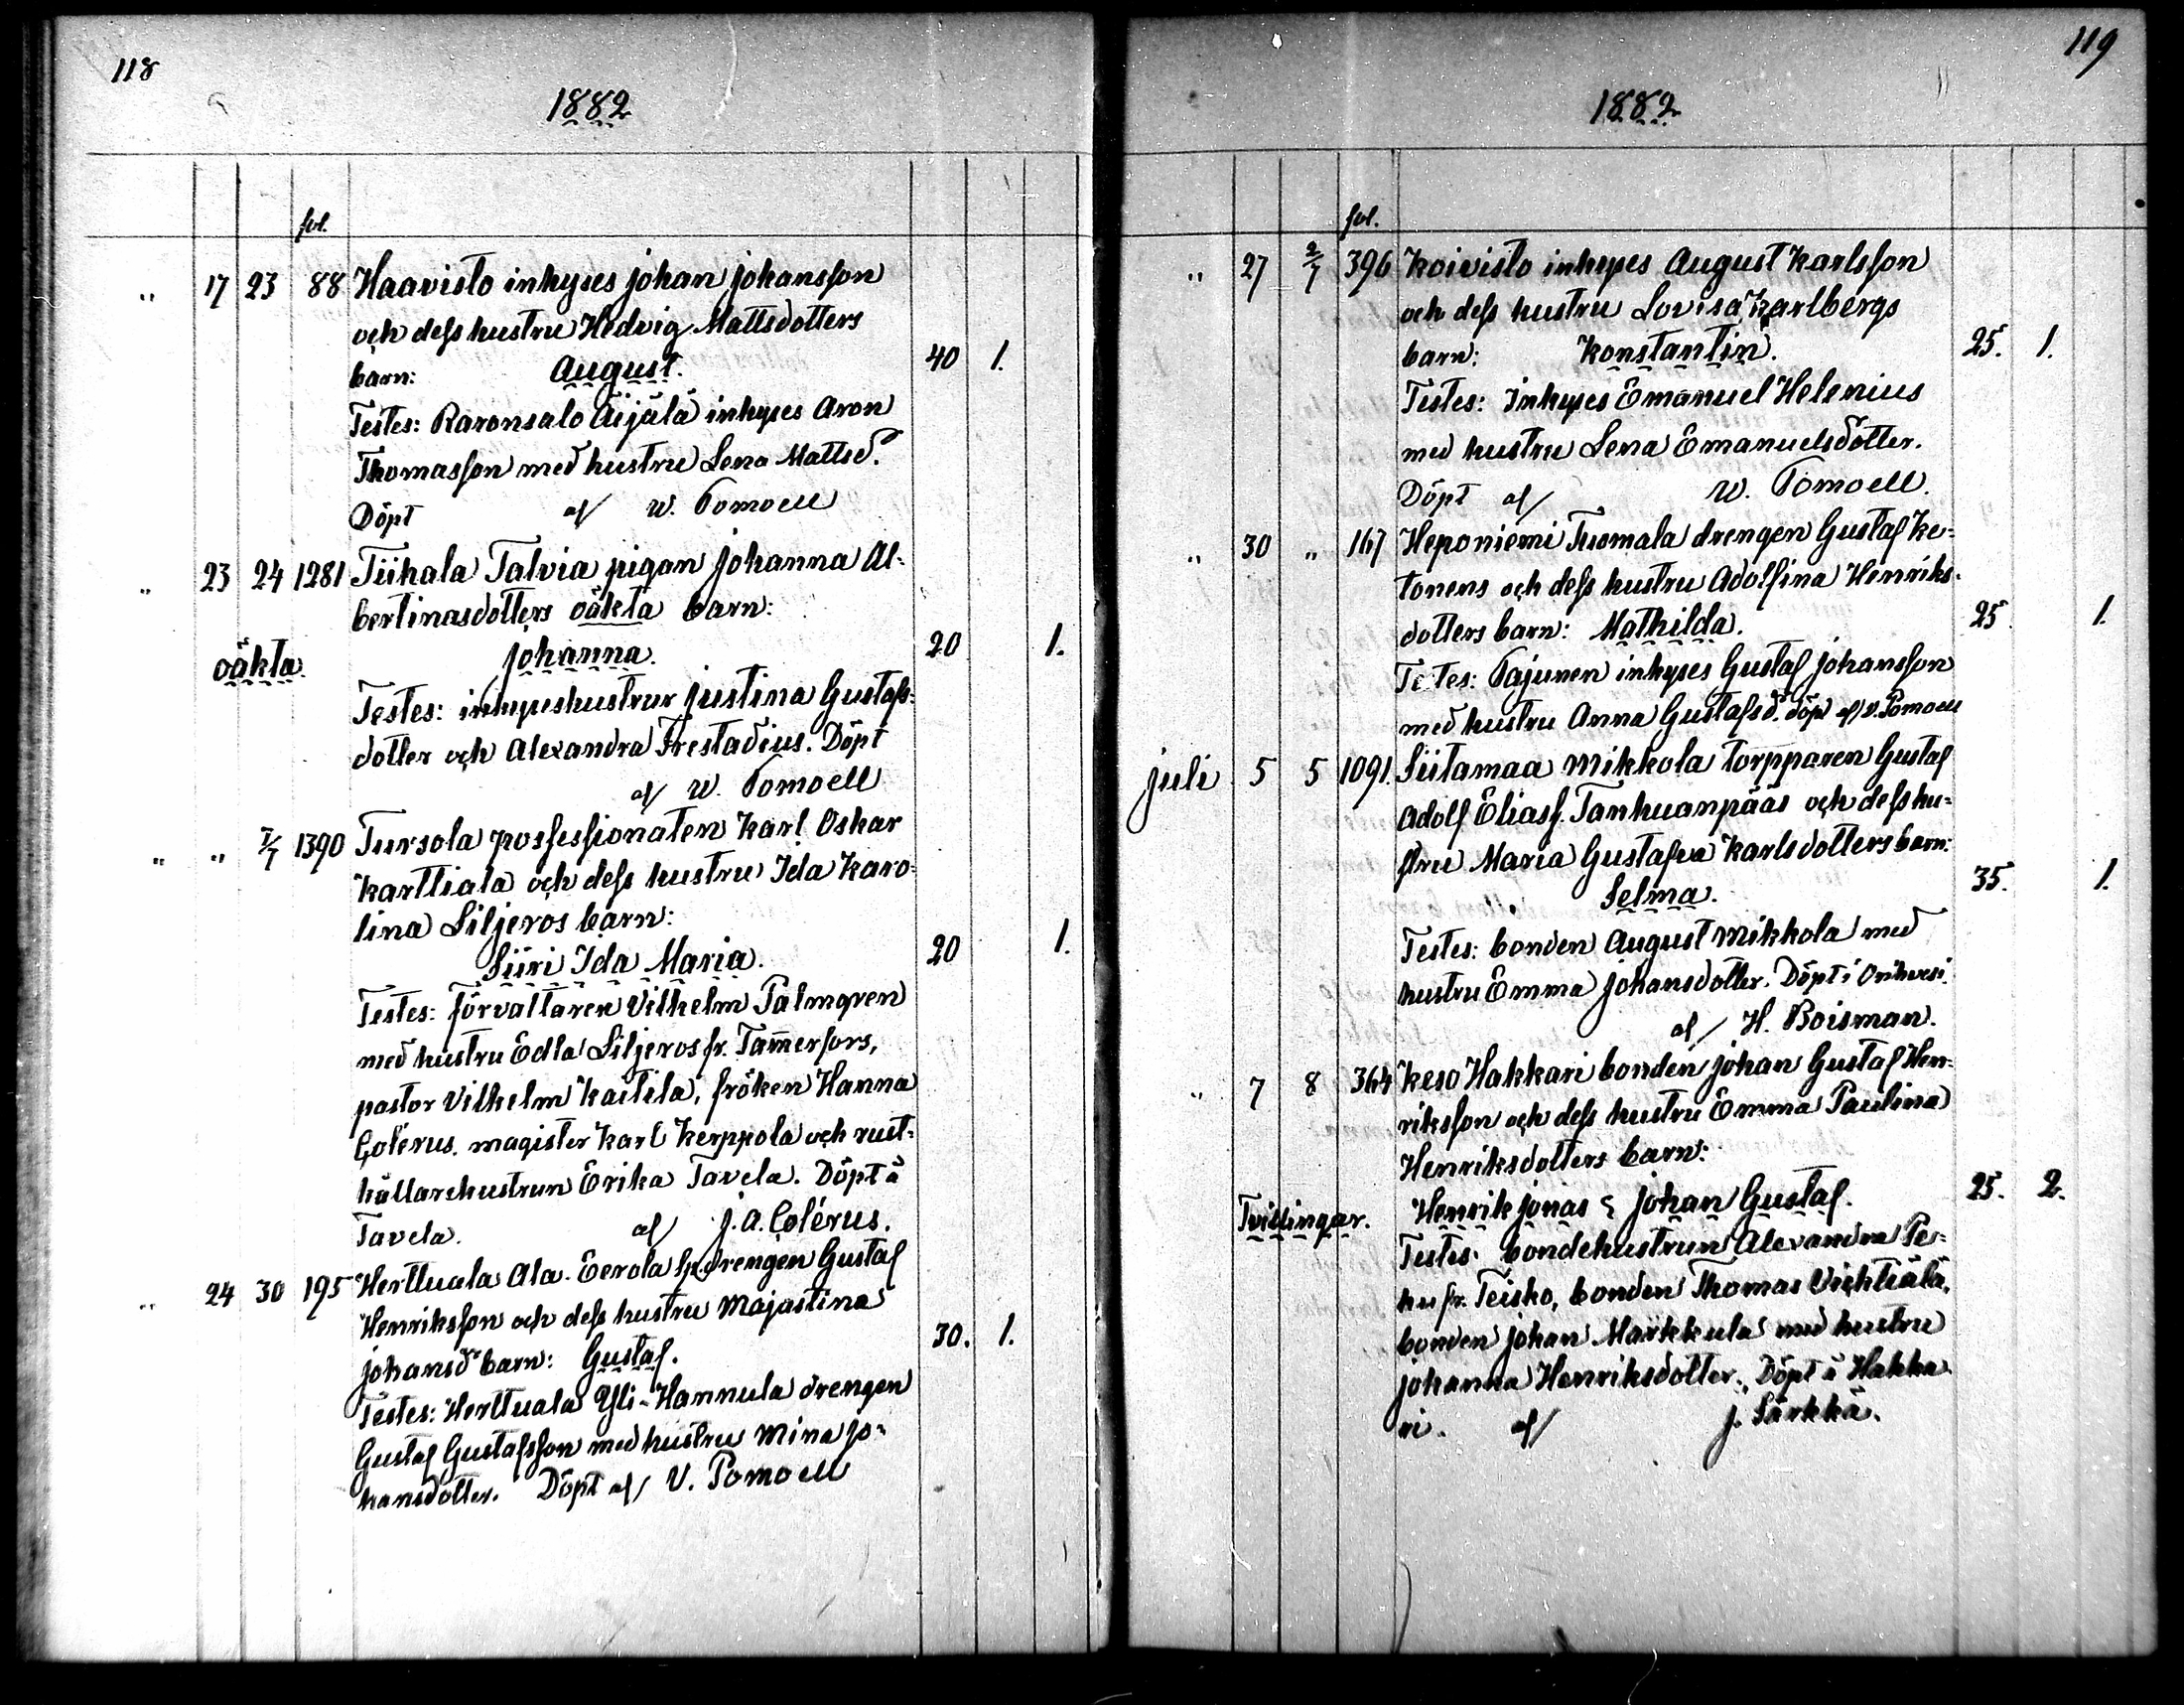 118
1882
fol.
" 17 23 88 Haavisto inhyses Johan Johansson
och dess hustru Hedvig Mattsdotters
barn: August. 40 1.
Testes: Raronsalo Äijälä inhyses Aron
Thomasson med hustru Lena Mattsd.
Döpt af W. Pomoell
" 23 24 1281 Tiihala Talvia pigan Johanna Al-
bertinasdotters oäkta barn:
oäkta. Johanna. 20 1.
Testes: inhyseshustrur Justina Gustafs-
dotter och Alexandra Frestadius. Döpt
af W. Pomoell
" " 7/7 1390 Tursola possessionaten Karl Oskar
Karttiala och dess hustru Ida Karo-
lina Liljeros barn:
Siiri Ida Maria. 20 1.
Testes: förvaltaren Vilhelm Palmgren
med hustru Edla Liljeros fr. Tam̅erfors,
pastor Vilhelm Kaitila, fröken Hanna
Colérus, magister Karl Kerppola och rust-
hållarehustrun Erika Tavela. Döpt å
Tavela. af J. A. Colérus.
" 24 30 195 Herttuala Ala-Eerola drengen Gustaf
Henriksson och dess hustru Majastina
Johansd. barn: Gustaf. 30. 1.
Testes: Herttuala Yli-Hannula drengen
Gustaf Gustafsson med hustru Mina Jo-
hansdotter. Döpt af V. Pomoell
119
1882
fol.
" 27 2/7 396 Koivisto inhyses August Karlsson
och dess hustru Lovisa Karlbergs
barn: Konstantin. 25. 1.
Testes: Inhyses Emanuel Helenius
med hustru Lena Emanuelsdotter.
Döpt af W. Pomoell.
" 30 " 167 Heponiemi Tuomala drengen Gustaf Ke-
tonens och dess hustru Adolfina Henriks-
dotters barn: Mathilda. 25 1.
Testes: Pajunen inhyses Gustaf Johansson
med hustru Anna Gustafsd. döpt af V. Pomoell
Juli 5 5 1091. Siitamaa Mikkola torpparen Gustaf
Adolf Eliass. Tanhuanpääs och dess hu-
stru Maria Gustafva Karlsdotters barn:
Selma. 35. 1.
Testes: bonden August Mikkola med
hustru Emma Johansdotter. Döpt i Orihvesi
af H. Boisman.
" 7 8 364 Keso Hakkari bonden Johan Gustaf Hen-
riksson och dess hustru Emma Paulina
Henriksdotters barn:
Tvillingar. Henrik Jonas & Johan Gustaf. 25. 2.
Testes: bondehustrun Alexandra Pe-
hu fr. Teisko, bonden Thomas Viehtiälä,
bonden Johan Markkula med hustru
Johanna Henriksdotter. Döpt å Hakka-
ri. af J. Särkkä.